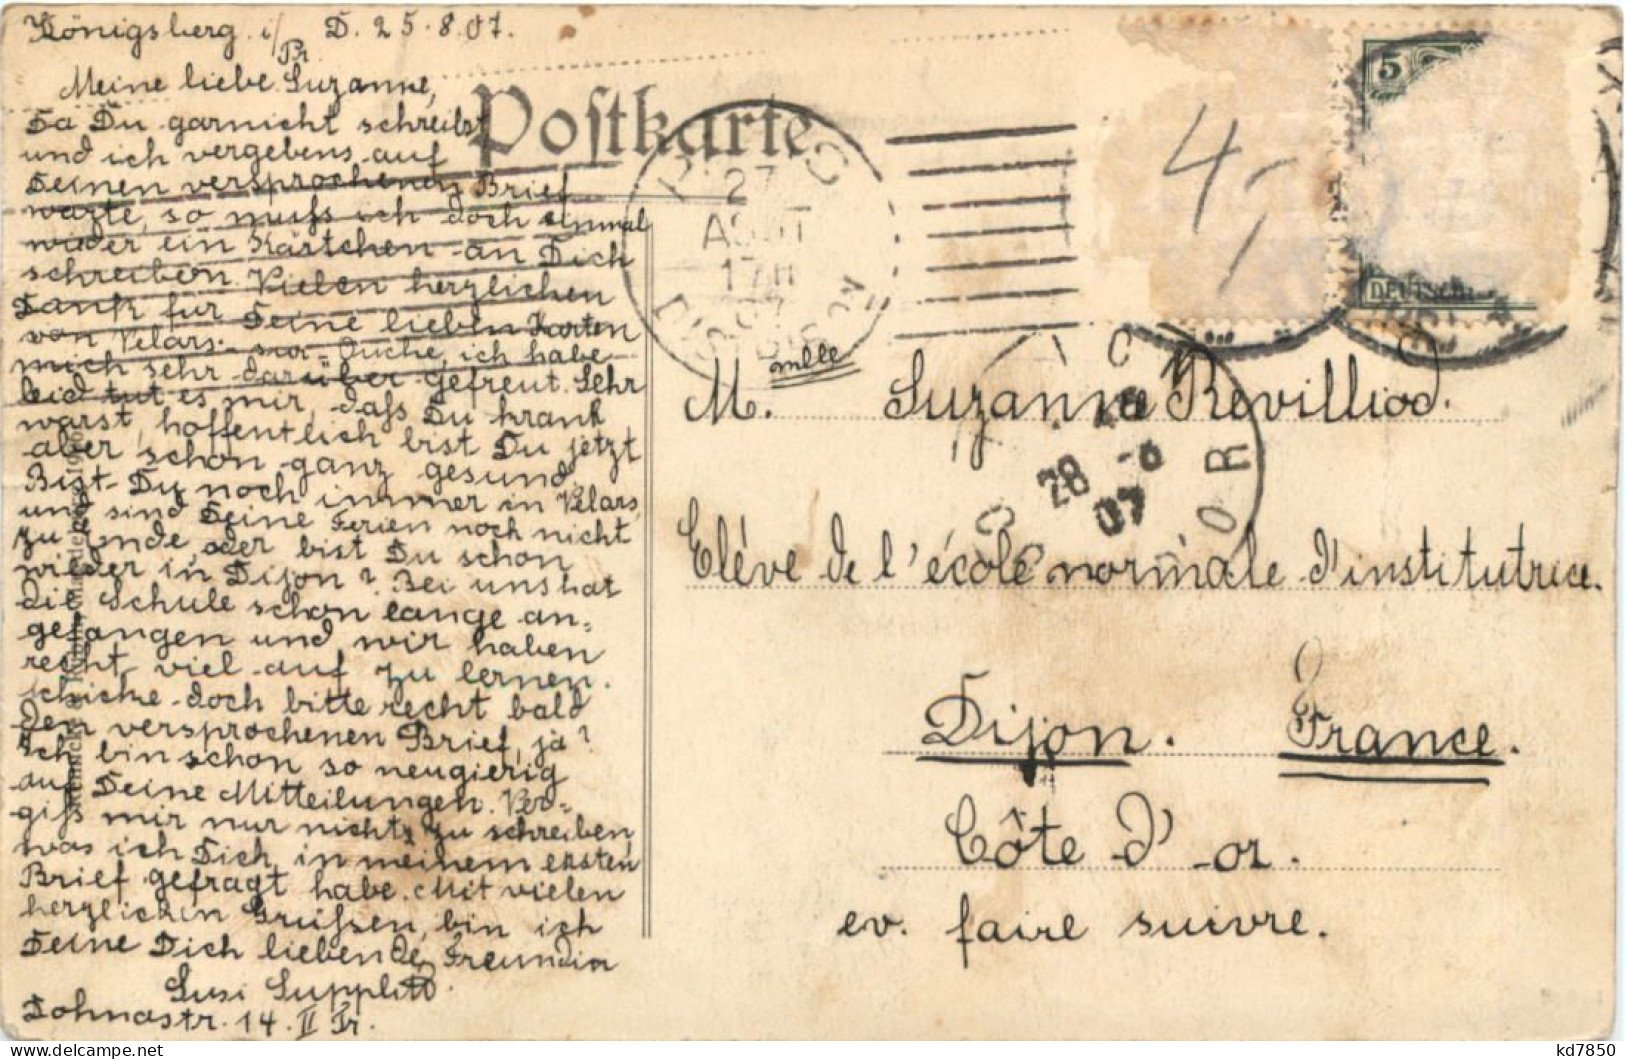 Königsberg i/Pr. D. 25.8.07.
Meine liebe Suzanne,
Da Du garnicht schreibst
und ich vergebens auf
Deinen versprochenen Brief
warte, so muss ich doch einmal
wieder ein Kärtchen an Dich
schreiben. Vielen herzlichen
Dank für Deine lieben Karten
von Velars-sur-Ouche, ich habe
mich sehr darüber gefreut. Sehr
leid tut es mir, dass Du krank
warst, hoffentlich bist Du jetzt
aber schon ganz gesund.
Bist Du noch immer in Velars,
und sind Deine Ferien noch nicht
zu Ende, oder bist Du schon
wieder in Dijon? Bei uns hat
die Schule schon lange an=
gefangen und wir haben
recht viel auf zu lernen.
Schicke doch bitte recht bald
den versprochenen Brief, ja?
Ich bin schon so neugierig
auf Deine Mitteilungen. Ver=
giss mir nur nicht zu schreiben,
was ich Dich in meinem ersten
Brief gefragt habe. Mit vielen
herzlichen Grüssen, bin ich
Deine Dich liebende Freundin
Susi Supplitt.
Dohnastr. 14. II Tr.
Postkarte
27
AOUT
17H
07
DIJON
4,
5
DEUTSCH
Mlle
M. Suzanne Revilliod.
28 -8
07
OR
Elève de l'école normale d'institutrice.
Dijon. France.
Côte d'or.
ev. faire suivre.
kd7850